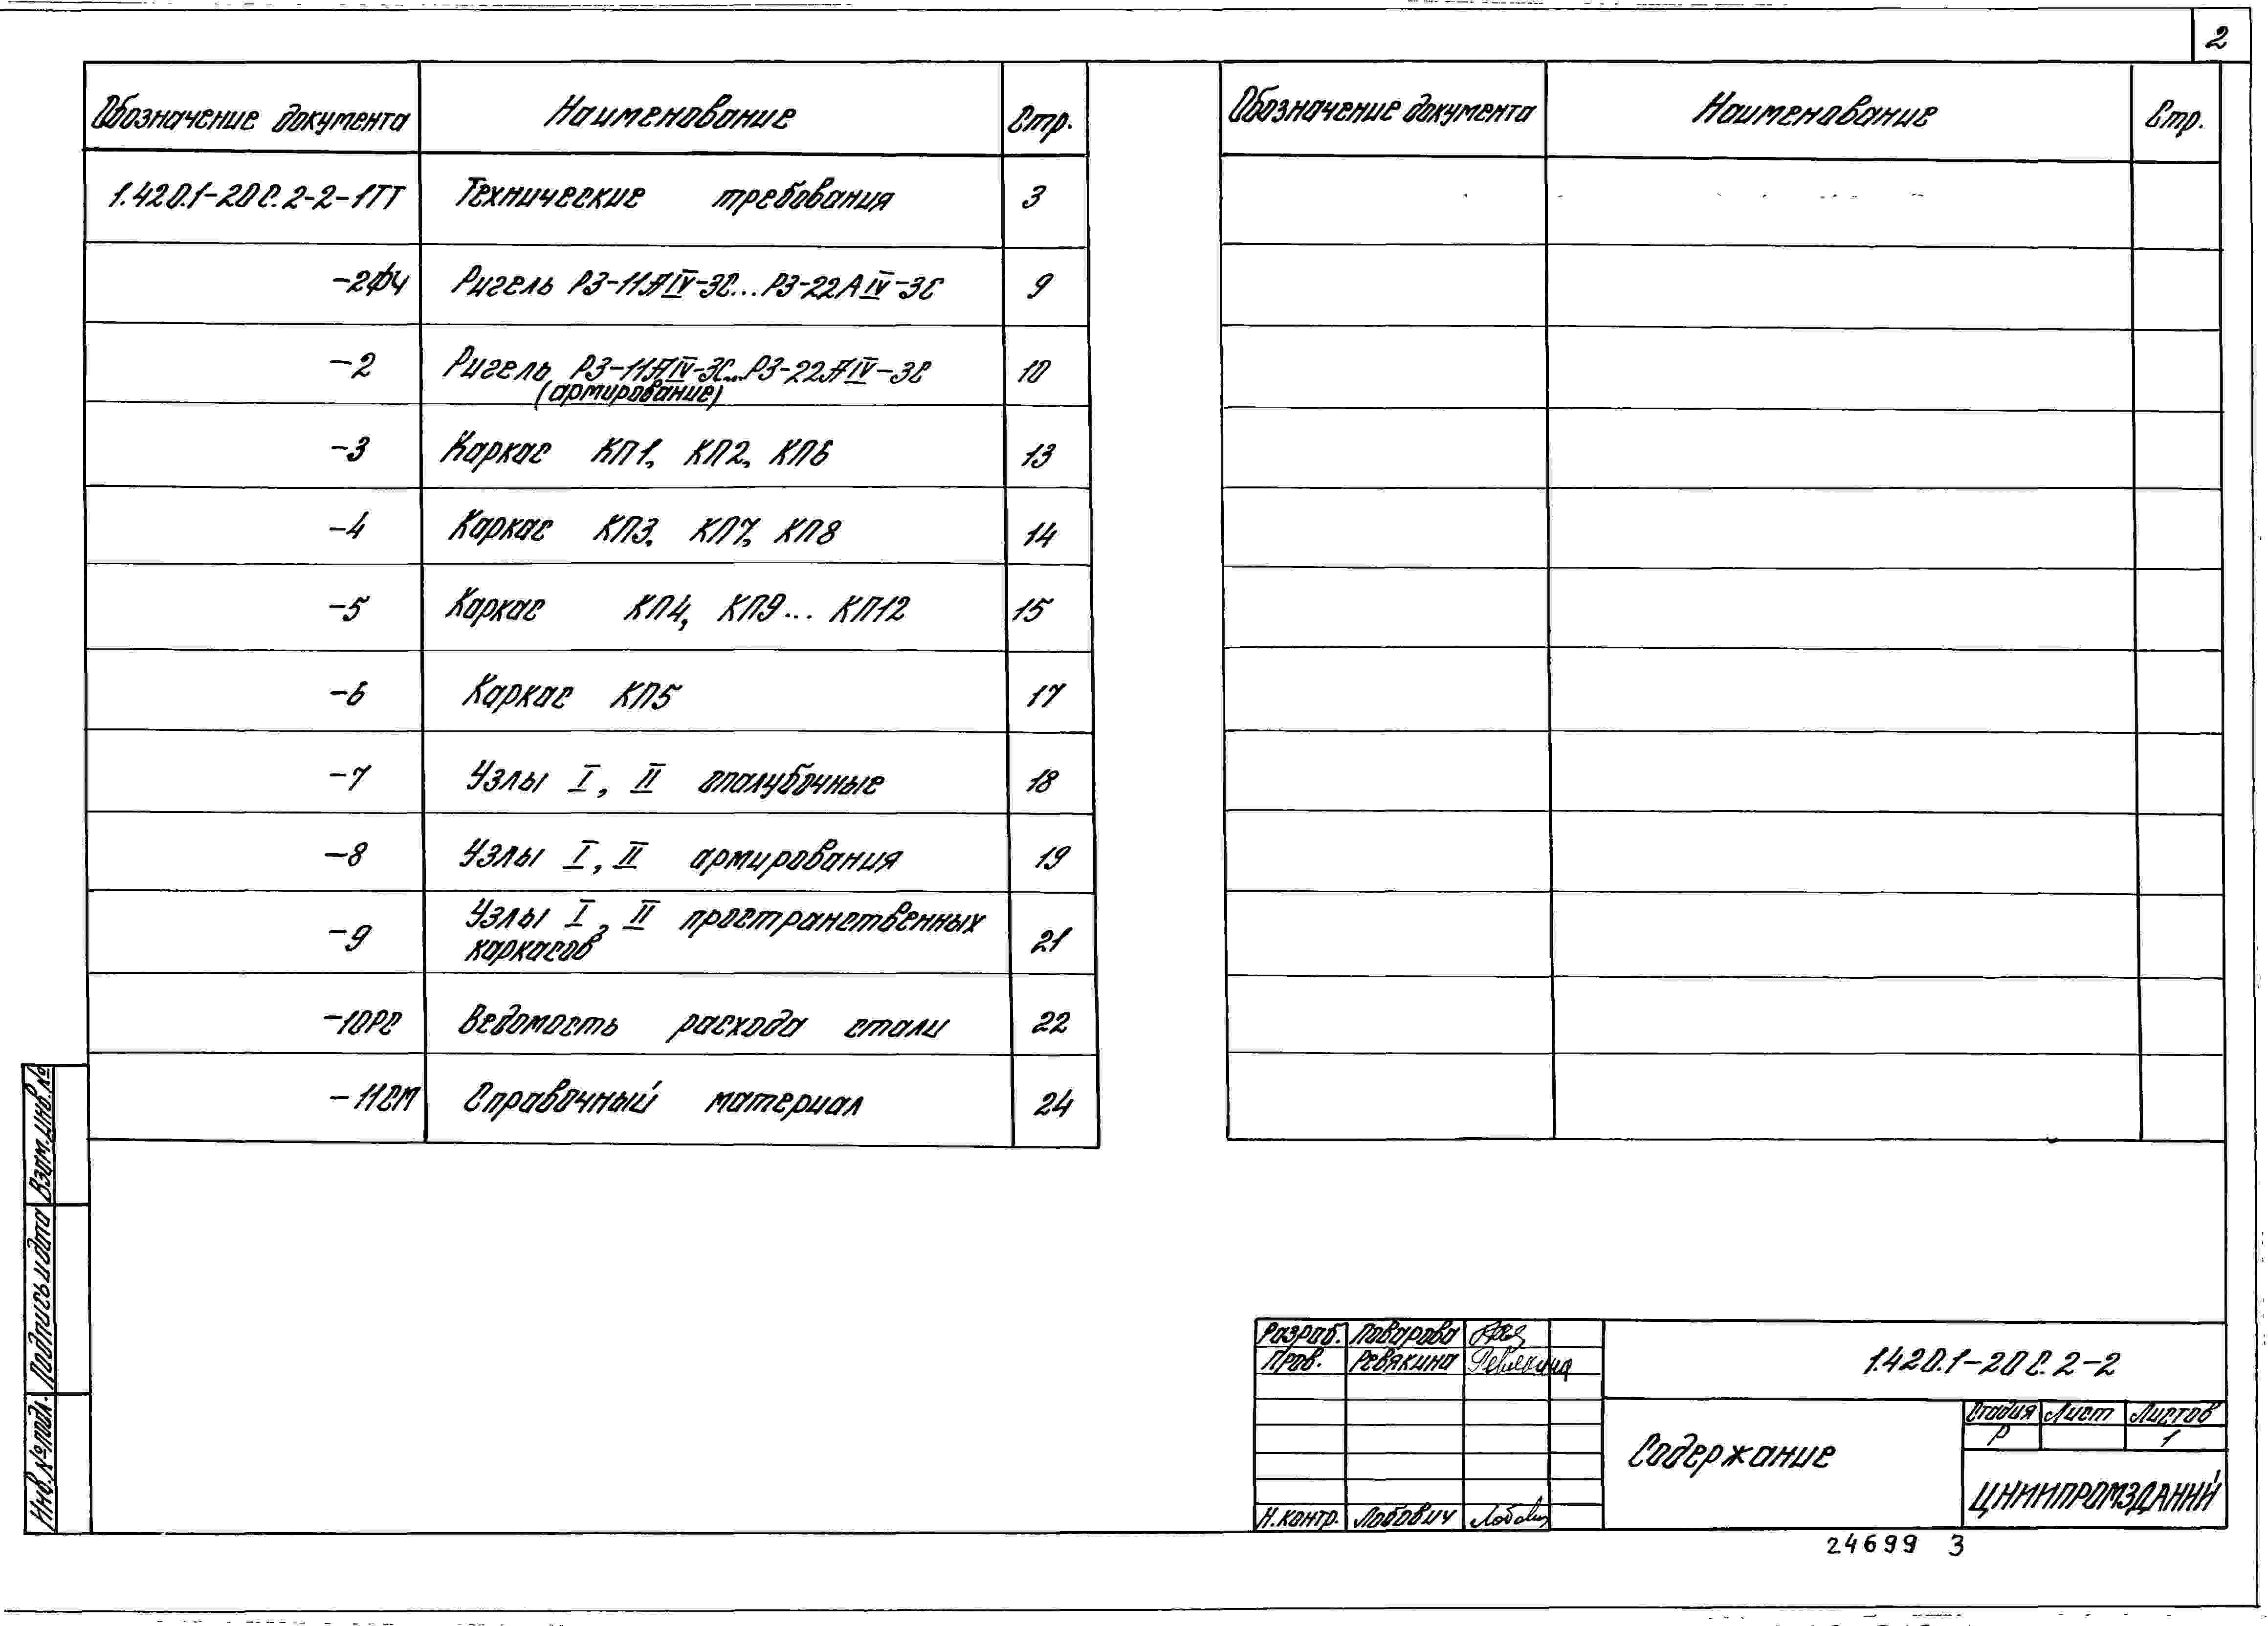 2
Обозначение документа Наименование Стр.
1.420.1-20С.2-2-1ТТ Технические требования 3
-2ФЧ Ригель Р3-11АIV-3С...Р3-22АIV-3С 9
-2 Ригель Р3-11АIV-3С...Р3-22АIV-3С 10
(армирование)
-3 Каркас КП1, КП2, КП6 13
-4 Каркас КП3, КП7, КП8 14
-5 Каркас КП4, КП9... КП12 15
-6 Каркас КП5 17
-7 Узлы I, II опалубочные 18
-8 Узлы I, II армирования 19
-9 Узлы I, II пространственных 21
каркасов
-10РС Ведомость расхода стали 22
-11СМ Справочный материал 24
Обозначение документа Наименование Стр.
Взам. инв. №
Подпись и дата
Инв. № подл.
Разраб. Поварова
Пров. Ревякина Ревякина
Н. контр. Лобович Лобович
1.420.1-20С.2-2
Содержание
Стадия Лист Листов
Р 1
ЦНИИПРОМЗДАНИЙ
24699 3